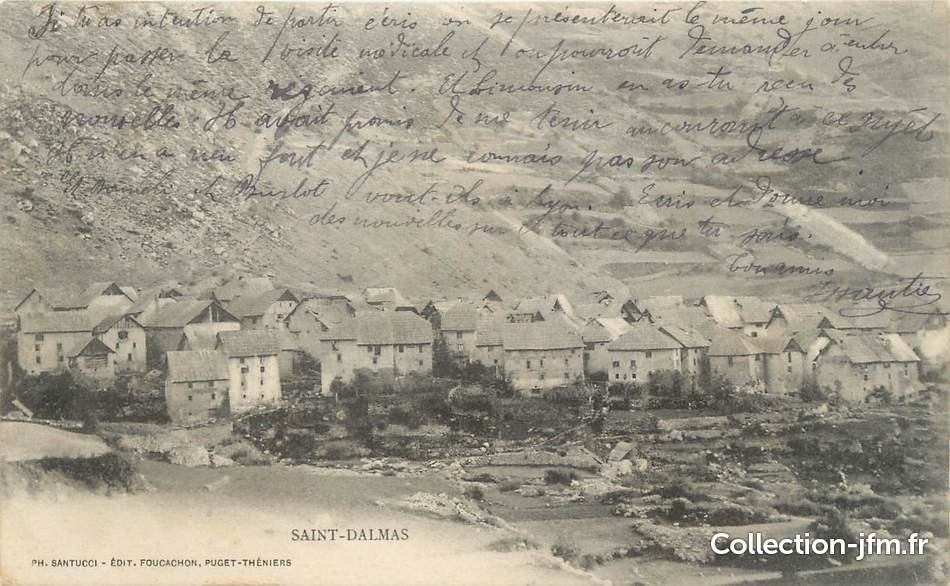 Si tu as intention de partir écris on se présenterait le même jour
pour passer la visite médicale et on pourrait demander à entrer
dans le même régiment. Et Limousin en as tu reçu des
nouvelles Il avait promis de me tenir au courant à ce sujet
Il n'en a rien fait et je ne connais pas son adresse
et Burlot vont-ils à Lyon. Ecris et donne moi
des nouvelles sur tout ce que tu sais.
Ton amis
SAINT-DALMAS
PH. SANTUCCI - ÉDIT. FOUCACHON, PUGET-THÉNIERS
Collection-jfm.fr